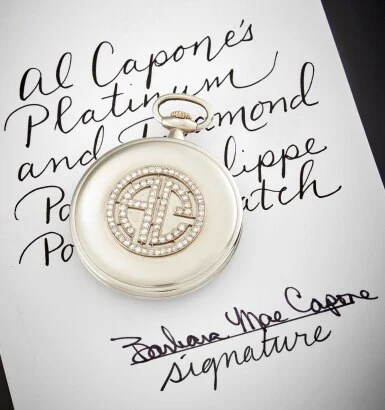 Al Capone's
Platinum
and Diamond
lippe
Po atch
Po
AC
Barbara Mae Capone
signature